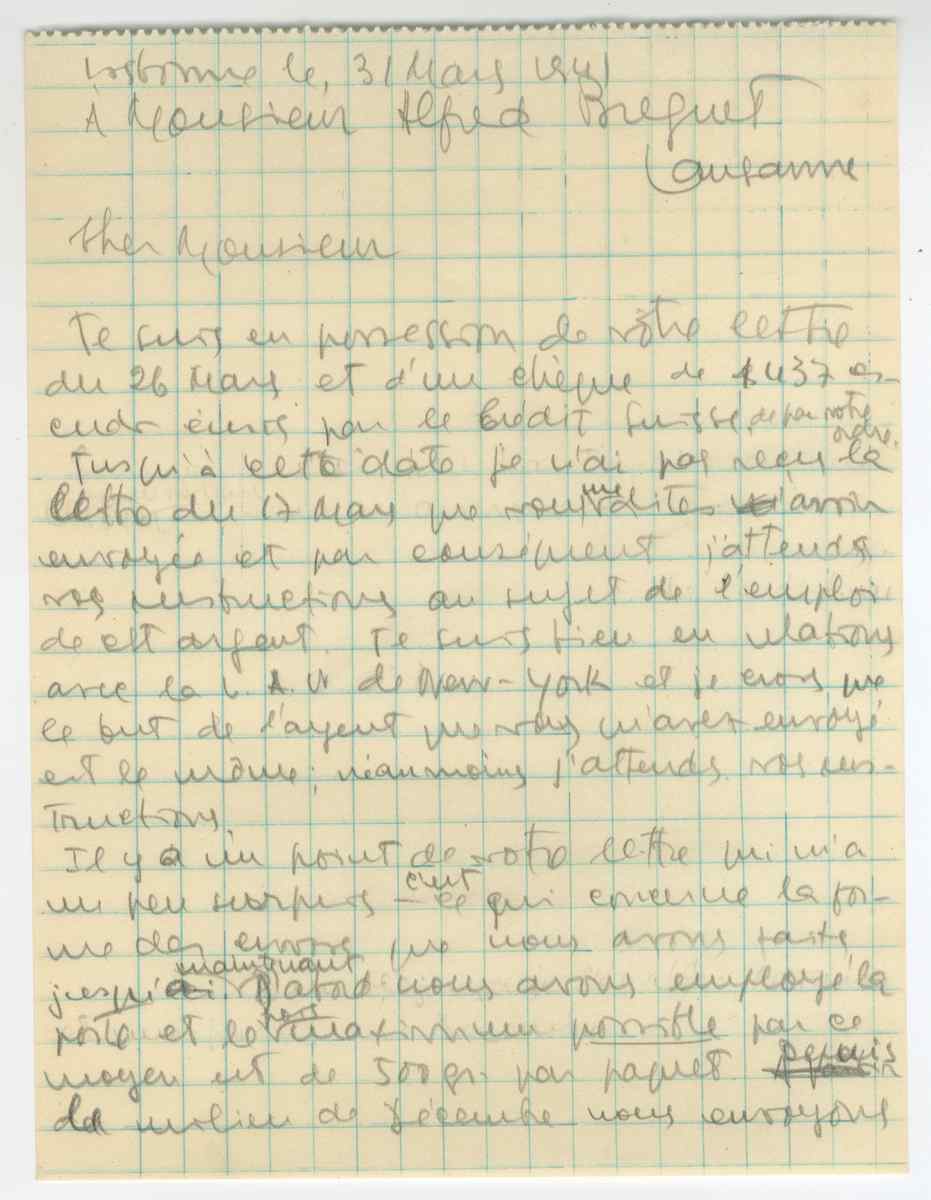 Lisbonne le, 31 Mars 1941
À Monsieur Alfred Breguet
Lausanne
Cher Monsieur
Je suis en possession de vôtre lettre
du 26 Mars et d'un chèque de $ 437 es-
cudos émis par le Crédit Suisse, de par votre
ordre.
Jusqu'à cette date je n'ai pas reçu la
lettre du 17 Mars que vous me dites avoir
envoyée et par conséquent j'attends
vos instructions au sujet de l'emploi
de cet argent. Je suis bien en relations
avec la de New-York et je crois que
le but de l'argent que vous m'avez envoyé
est le même; néanmoins j'attends vos ins-
tructions.
Il y a un point de votre lettre qui m'a
un peu surpris – c'est ce qui concerne la for-
me des envois que nous avons faits
jusqu'à maintenant. D'abord nous avons employé la
poste et le poids maximum possible par ce
moyen est de 500 gr. par paquet. Depuis
le milieu de Décembre nous envoyons